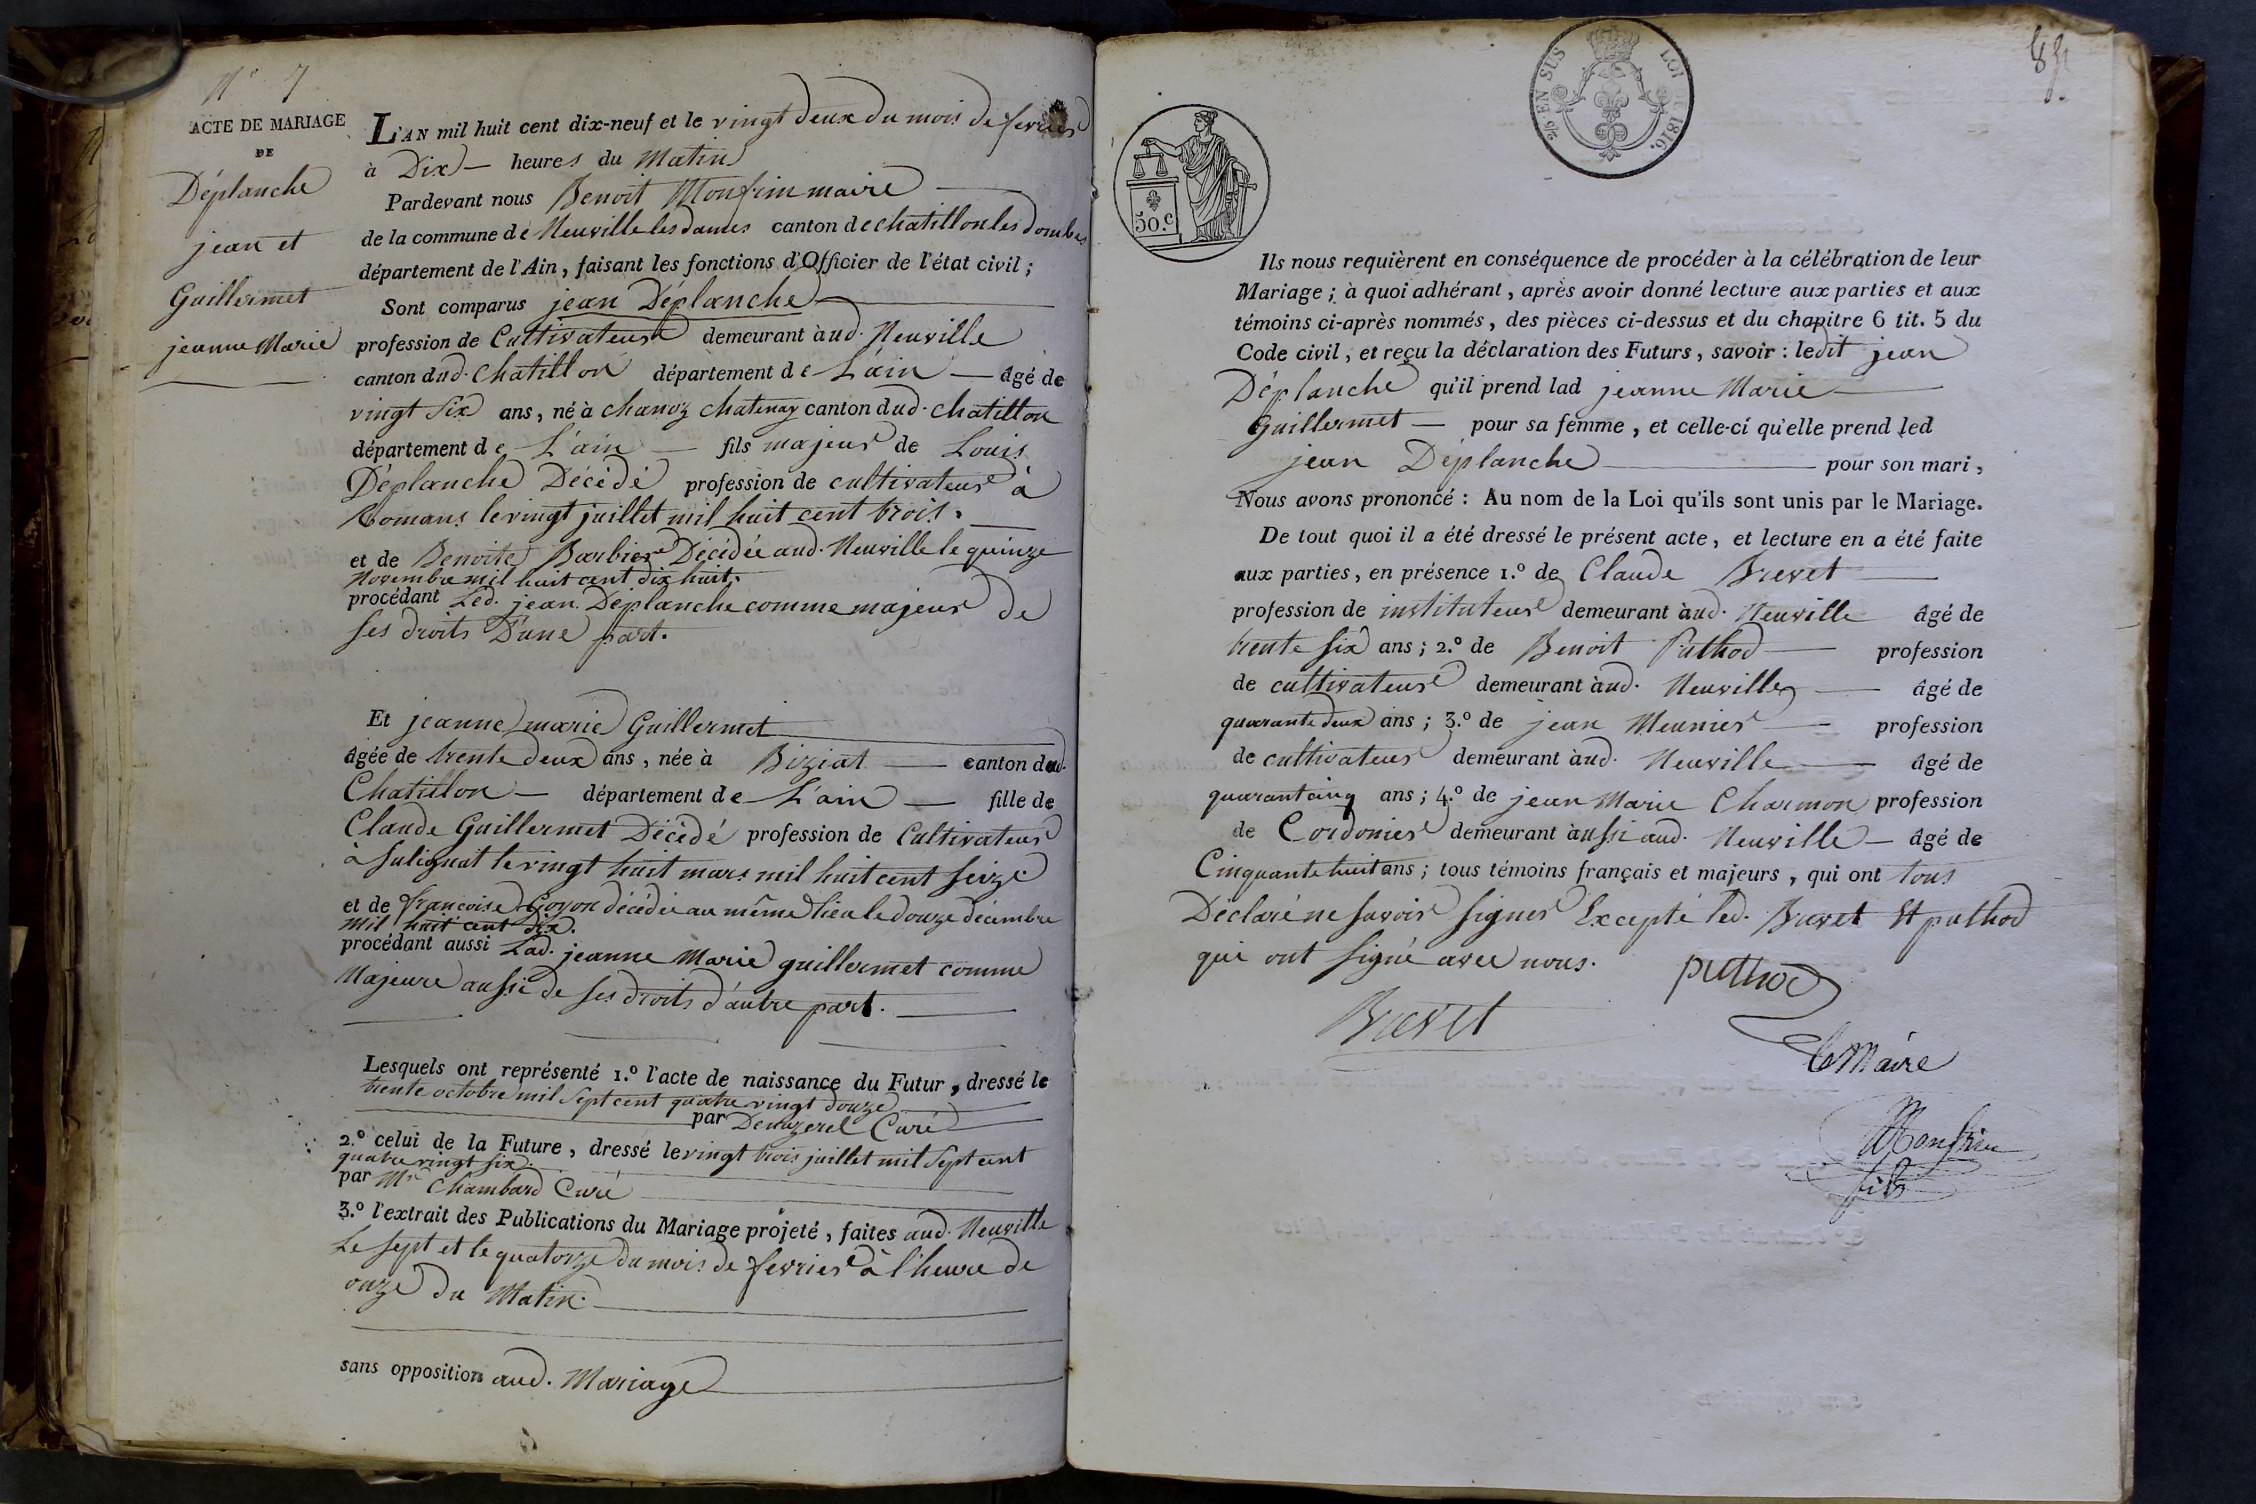 N° 7
ACTE DE MARIAGE
DE
Déplanche
jean et
Guillermet
jeanne Marie
L'AN mil huit cent dix-neuf et le vingt deux du mois de fevrier
à Dix heures du Matin
Pardevant nous Benoit Monfrin maire
de la commune de Neuville les dames canton de chatillon les dombes
département de l'Ain, faisant les fonctions d'Officier de l'état civil;
Sont comparus jean Déplanche
profession de Cultivateur demeurant àud. Neuville
canton dud. chatillon département de L'ain âgé de
vingt six ans, né à chanoz chatenay canton dud. chatillon
département de L'ain fils majeur de Louis
Déplanche Décédé profession de cultivateur à
Romans le vingt juillet mil huit cent trois.
et de Benoite Barbier Décédée aud. Neuville le quinze
Novembre mil huit cent dix huit.
procédant Led. jean Déplanche comme majeur de
ses droits D'une part.
Et jeanne marie Guillermet
âgée de trente deux ans, née à Biziat canton dud.
Chatillon département de L'ain fille de
Claude Guillermet Décédé profession de Cultivateur
à Sulignat le vingt huit mars mil huit cent seize
et de françoise Goyon décédée au même lieu le douze décembre
mil huit cent dix.
procédant aussi Lad. jeanne Marie guillermet comme
Majeure aussi de ses droits d'autre part.
Lesquels ont représenté 1.° l'acte de naissance du Futur, dressé le
trente octobre mil sept cent quatre vingt douze
par Denizerel Curé
2.° celui de la Future, dressé le vingt trois juillet mil sept cent
quatre vingt six.
par Mr Chambard Curé
3.° l'extrait des Publications du Mariage projeté, faites aud. Neuville
Le sept et le quatorze du mois de fevrier à l'heure de
onze du Matin.
sans opposition aud. Mariage
EN SUS LOI DE 1816.
50.c
Ils nous requièrent en conséquence de procéder à la célébration de leur
Mariage; à quoi adhérant, après avoir donné lecture aux parties et aux
témoins ci-après nommés, des pièces ci-dessus et du chapitre 6 tit. 5 du
Code civil, et reçu la déclaration des Futurs, savoir: ledit jean
Déplanche qu'il prend lad jeanne Marie
Guillermet pour sa femme, et celle-ci qu'elle prend led
jean Déplanche pour son mari,
Nous avons prononcé: Au nom de la Loi qu'ils sont unis par le Mariage.
De tout quoi il a été dressé le présent acte, et lecture en a été faite
aux parties, en présence 1.° de Claude Brevet
profession de instituteur demeurant àud. Neuville âgé de
trente six ans; 2.° de Benoit Puthod profession
de cultivateur demeurant àud. Neuville âgé de
quarante deux ans; 3.° de jean Meunier profession
de cultivateur demeurant àud. Neuville âgé de
quarant cinq ans; 4.° de jean Marie Charmon profession
de Cordonier demeurant àussi aud. Neuville âgé de
Cinquante huit ans; tous témoins français et majeurs, qui ont tous
Déclaré ne savoir signer Excepté led. Brevet Et puthod
qui ont signé avec nous.
puthod
Brevet
le Maire
Monfrin
fils